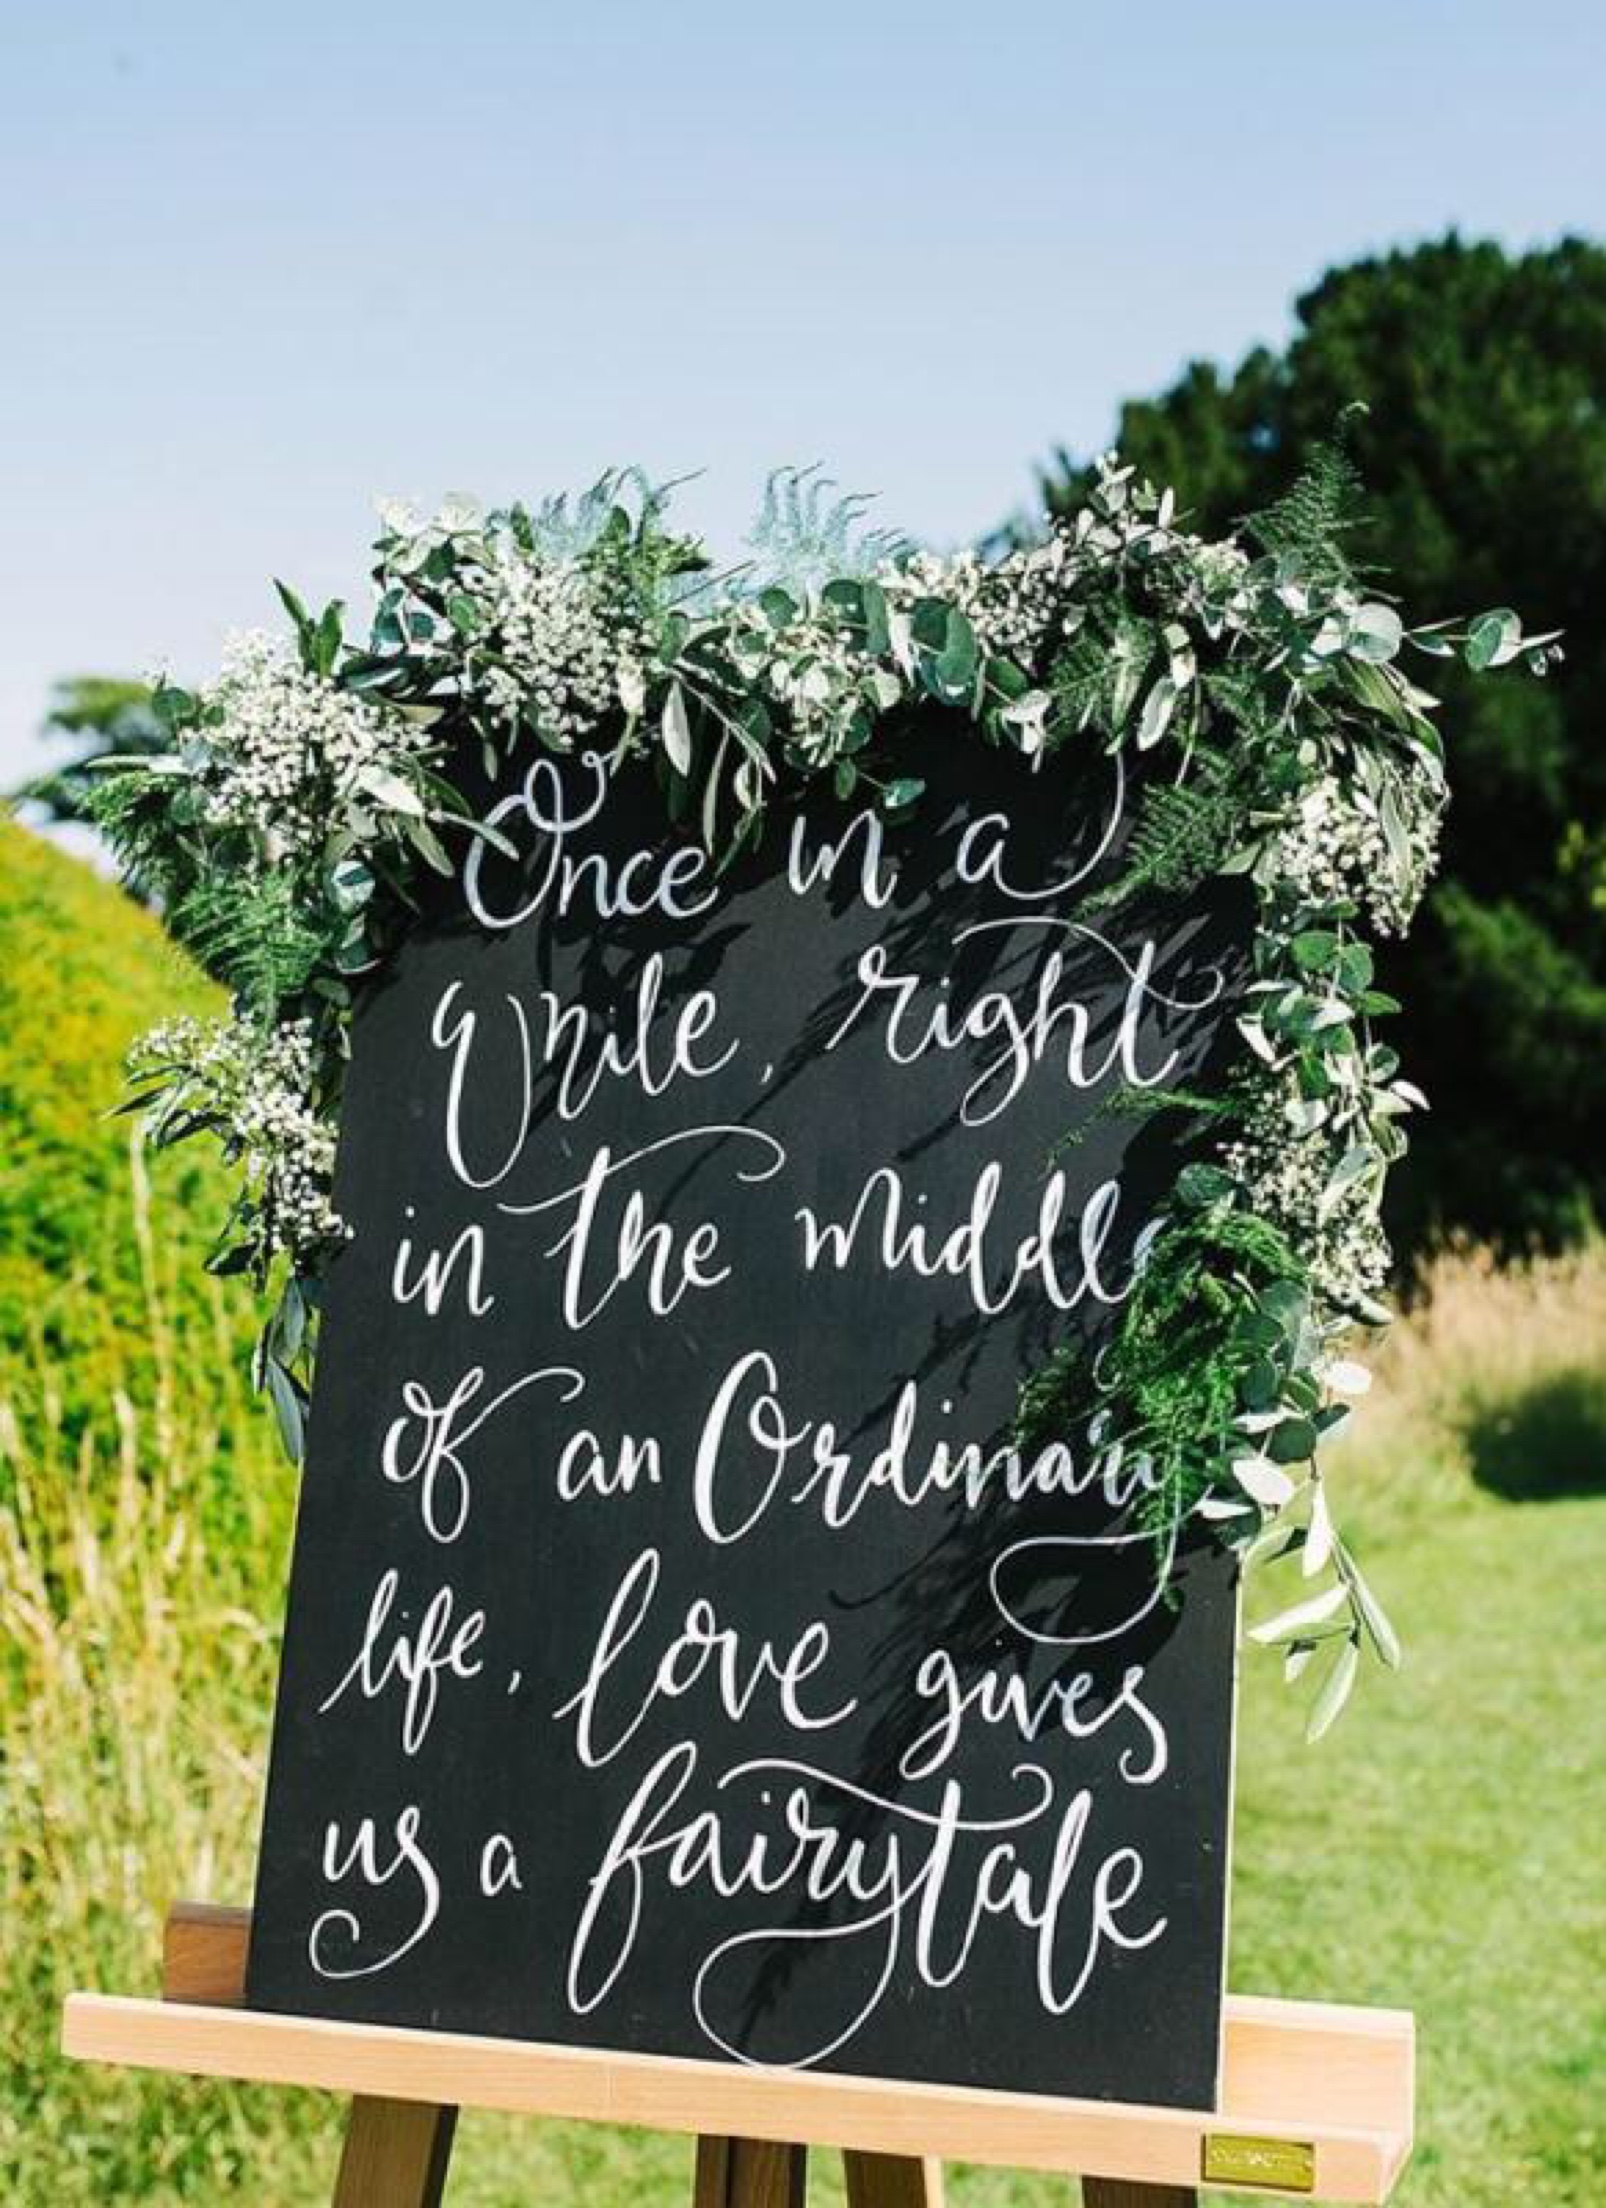 Once in a
While, right
in the middle
of an Ordinary
life, love gives
us a fairytale